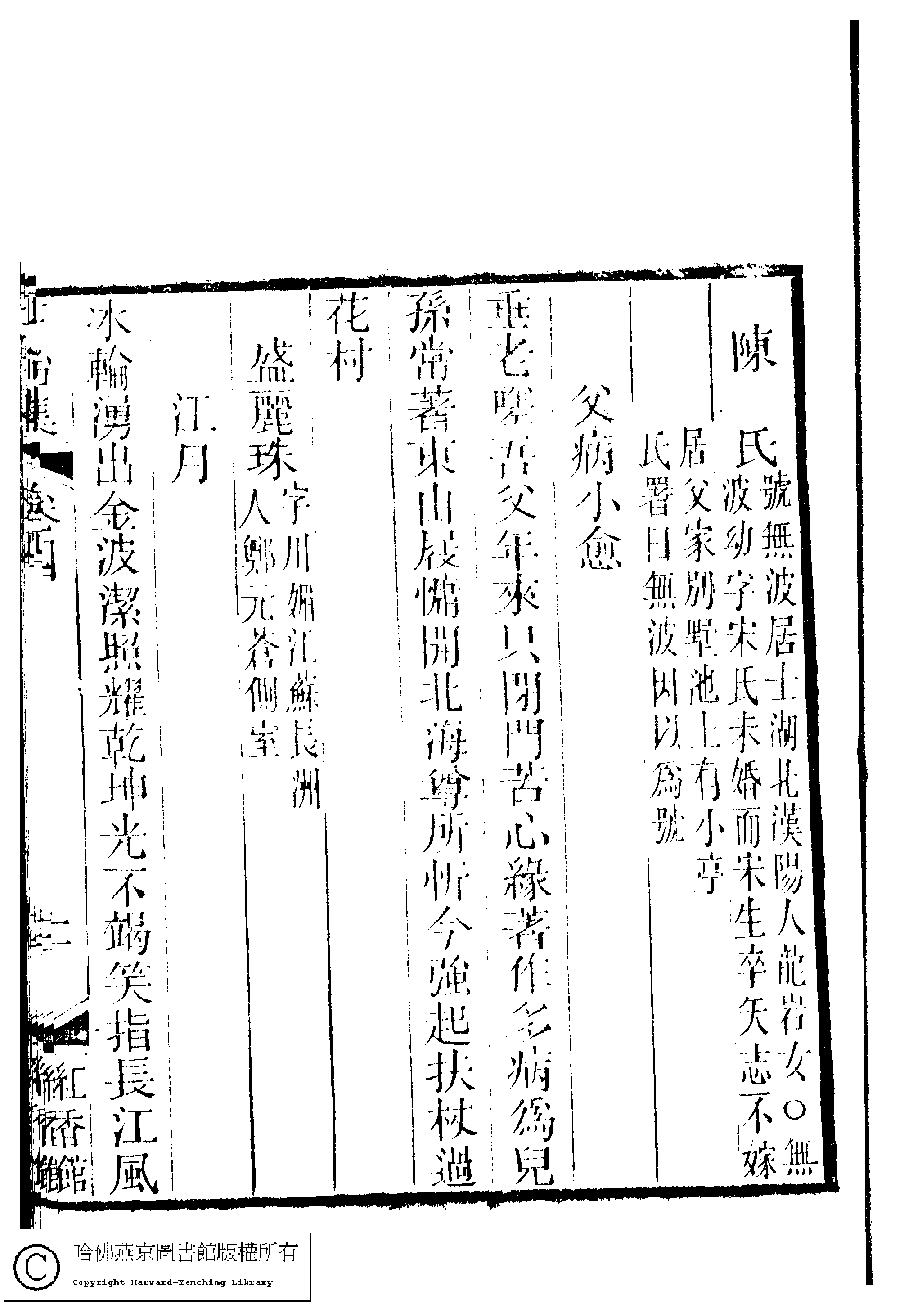 陳　氏
號無波居士湖北漢陽人龍岩女○無
波幼字宋氏未婚而宋生卒矢志不嫁
居父家別墅池上有小亭
氏署曰無波因以爲號
父病小愈
垂老嗟吾父年來只閉門苦心緣著作多病爲兒
孫常著東山屐慵開北海尊所忻今強起扶杖過
花村
盛麗珠
字川媚江蘇長洲
人鄭元蒼側室
江月
冰輪湧出金波潔照耀乾坤光不竭笑指長江風
集
卷四
二
紅香館
哈佛燕京圖書館版權所有
Copyright Harvard-Yenching Library